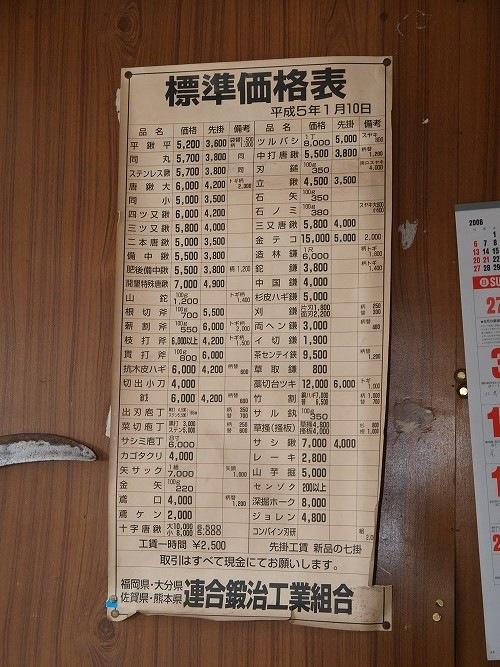 標準価格表
平成5年1月10日
品名 価格 先掛 備考
平鍬平 5,200 3,600
同丸 5,700 3,800 同
ステンレス鍬 5,700 3,800 同
唐鍬大 6,000 4,200
同小 5,000 3,500
四ツ又鍬 6,000 4,200
三ツ又鍬 5,800 4,000
二本唐鍬 5,000 3,500
備中鍬 5,500 3,800
肥後備中鍬 5,500 3,800 柄1,200
開墾特殊唐鍬 7,000 4,900
山鉈 100g 1,200 トギ柄 1,400
根切斧 100g 700 5,500
薪割斧 100g 550 6,000 トギ柄 2,000
枝打斧 6,000以上 4,200 トギ柄 1,500
貫打斧 100g 800 6,000
抗木皮ハギ 6,000 柄替
切出小刀 4,000
6,000 4,200 柄替 600
出刃庖丁 柄替 350 700
菜切庖丁 鋼打 3,000 ステン 5,000 柄替
サシミ庖丁 8寸 6,000
カゴタクリ 4,000
矢サック 1組 7,000 矢頭 1,000
金矢 100g 220
鳶口 4,000 柄替 1,200
鳶ケン 2,000
十字唐鍬 大10,000 小8,000
工賃一時間 ¥2,500
品名 価格 先掛 備考
ツルバシ 1丁 8,000 5,000 スヤキ
中打唐鍬 5,500 3,800 柄替 1,200
刃鎚 100g 350
立鍬 4,500 3,500
石矢 100g 350
石ノミ 100g 380
三又唐鍬 5,800 4,000
金テコ 15,000 5,000 2,000
造林鎌 1尺 6,000 柄トギ 1,800
鉈鎌 3,800 柄トギ 1,400
中国鎌 4,000
杉皮ハギ鎌 5,000
刈鎌 片刃 1,800 両刃 2,200 柄替 250 300
両ヘン鎌 3,000 柄替 400
イ切鎌 1,900
茶センテイ鋏 9,500 柄替 1,200
草取鎌 800
藁切台ツキ 12,000 6,000 トギ 1,000
竹割
サル釻 100g 350
草掻(搔板)
サシ鍬 7,000 4,000
レーキ 2,800
山芋掘 5,000
センゾク 200以上
深掘ホーク 8,000
ジョレン 4,800
コンバイン刃研
先掛工賃 新品の七掛
取引はすべて現金にてお願いします。
福岡県・大分県
佐賀県・熊本県 連合鍛冶工業組合
2008